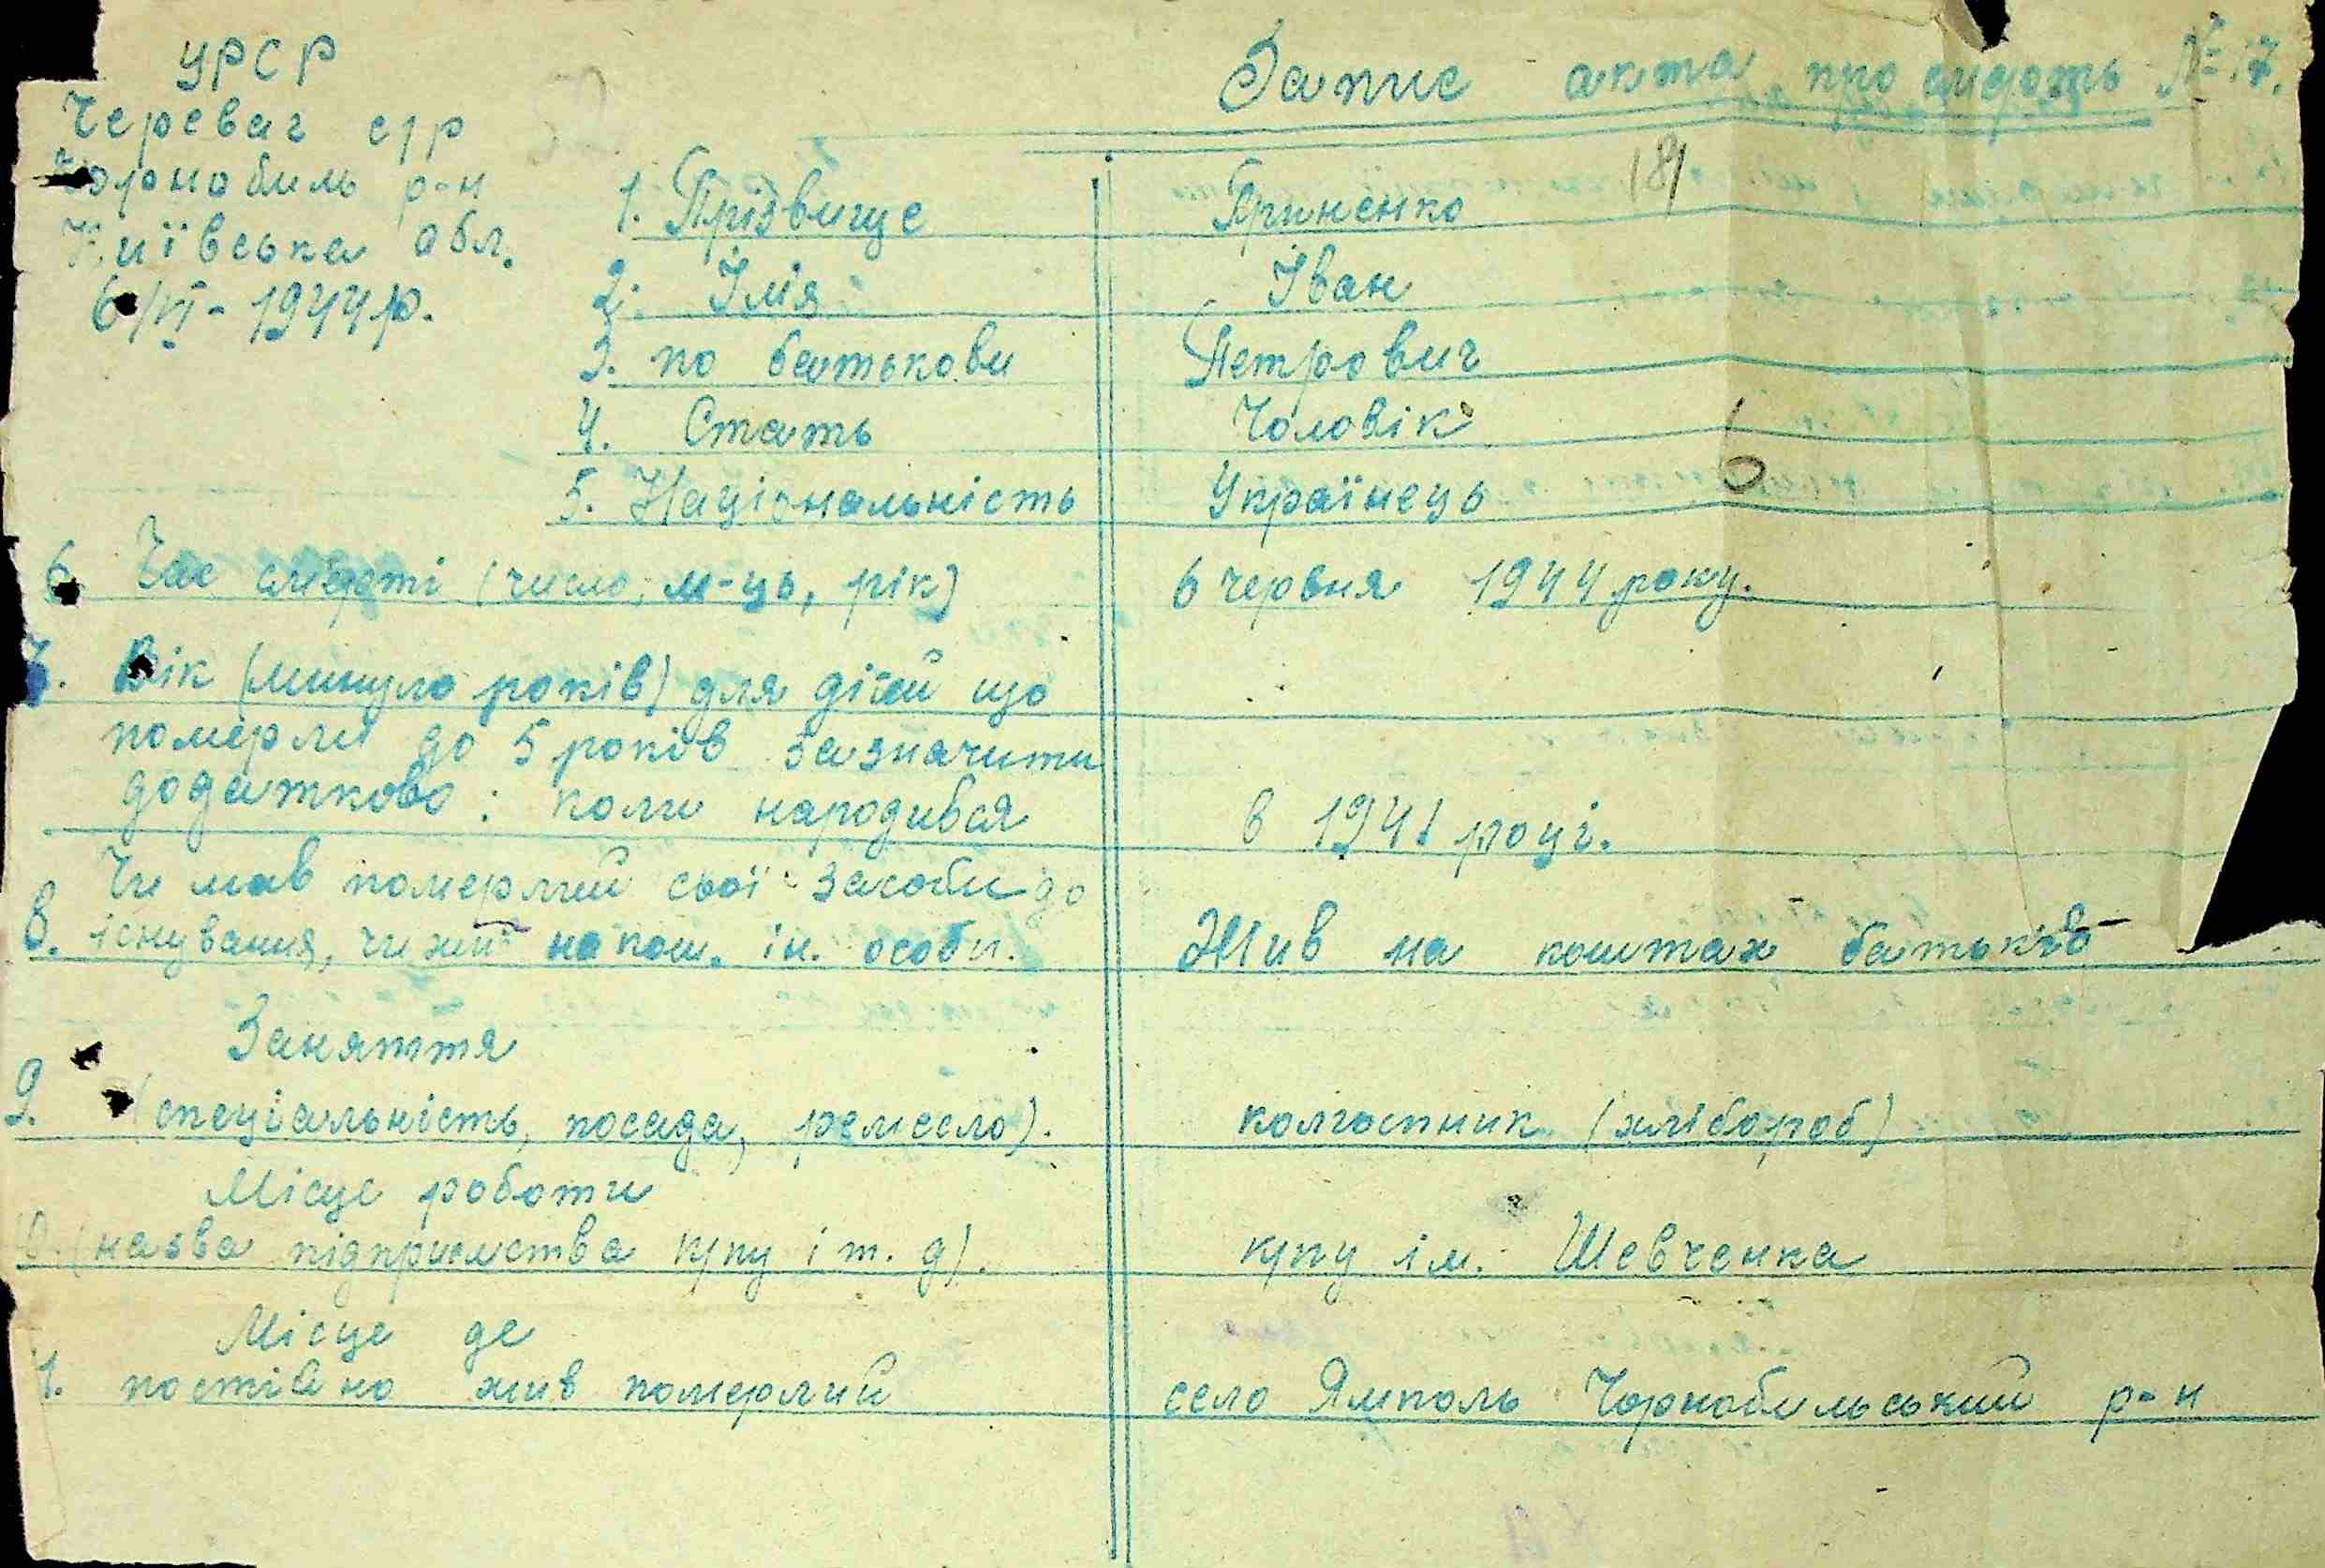 УРСР
Черевач с/р
Чорнобиль р-н
Київська обл.
6/VI - 1944 р.
Запис акта про смерть № 17.
181
1. Прізвище Гриненко
2. Імя Іван
3. по батькови Петрович
4. Стать Чоловік
5. Національність Українець
6. Час смерті (число, м-ць, рік) 6 червня 1944 року.
7. Вік (минуло років) для дітей що
померли до 5 років зазначити
додатково: коли народився в 1941 році.
Чи мав померлий свої засоби до
8. існування, чи жив на кош. ін. особи. Жив на коштах батьків
Заняття
9. (спеціальність, посада, ремесло). колгоспник (хлібороб)
Місце роботи
10. (назва підприємства к/пу і т. д). к/пу ім. Шевченка
Місце де
11. постійно жив померлий село Ямполь Чорнобильський р-н